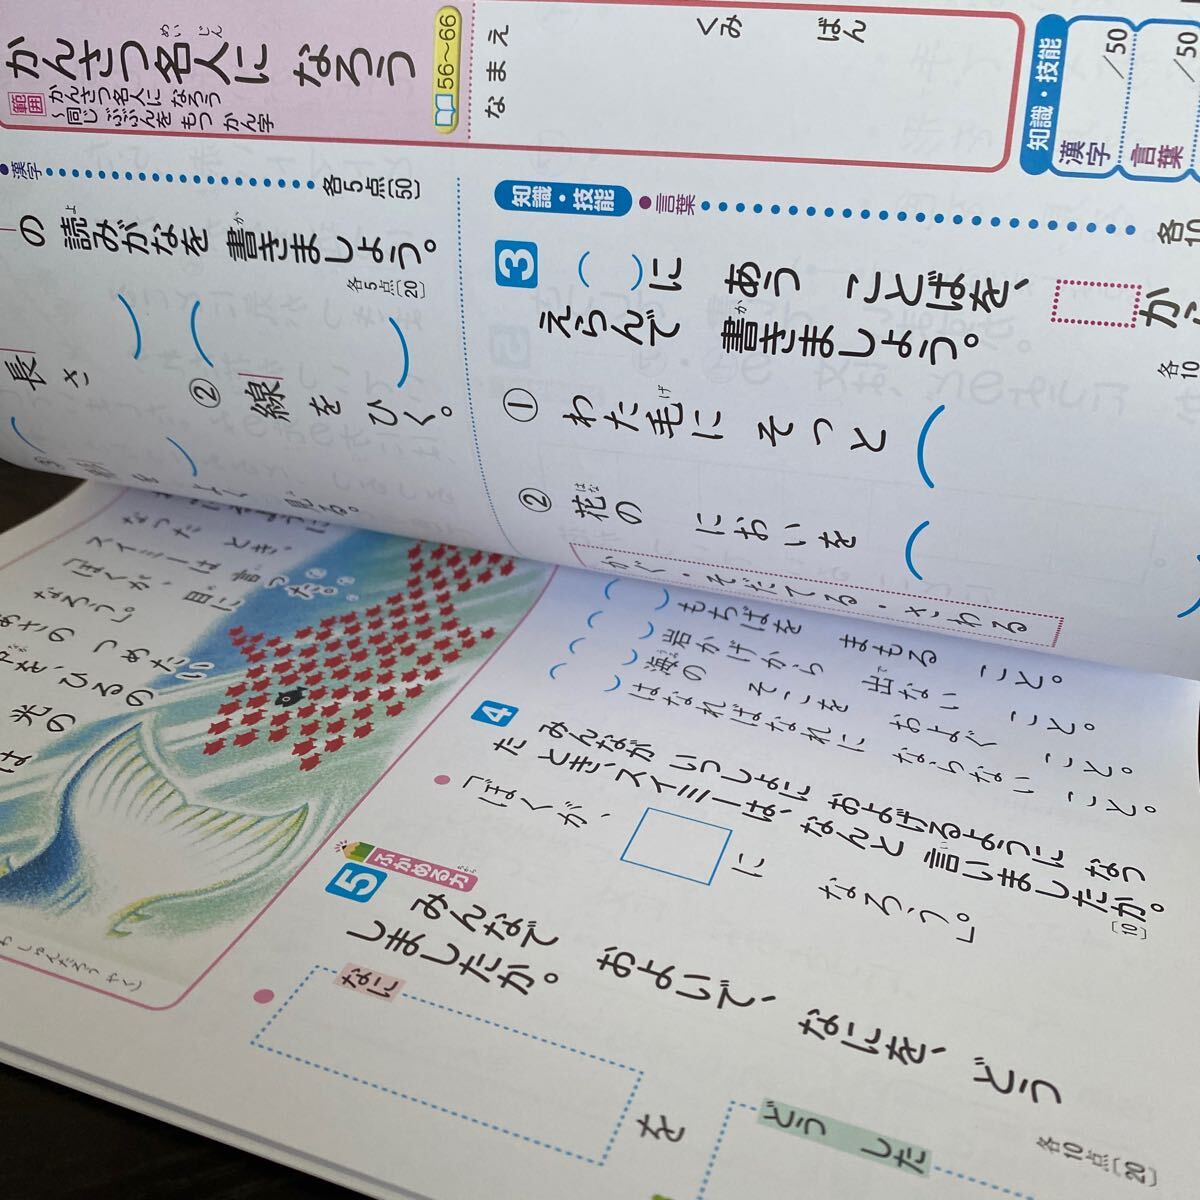 かんさつ名人に なろう
めいじん
範囲
かんさつ名人に なろう
〜同じ ぶぶんを もつ かん字
56〜66
なまえ
くみ
ばん
知識・技能
漢字
/50
言葉
/50
漢字
各5点〔50〕
の 読みがなを 書きましょう。
よ
か
各5点〔20〕
長さ
② 線を ひく。
よく 見る。
知識・技能
言葉
各10
3 （ ）に あう ことばを、
か
えらんで 書きましょう。
か
各10
① わた毛に そっと（
げ
② 花の においを（
はな
かぐ・そだてる・さわる
なった とき、
スイミーは 言った。
「ぼくが、目に
なろう。」
あさの つめたい
ひるの
光の
もちばを まもる こと。
岩かげから 出ない こと。
海の そこを およぐ こと。
はなればなれに ならない こと。
4 みんなが いっしょに およげるように なっ
た とき、スイミーは、なんと 言いましたか。
〔10〕
「ぼくが、
に なろう。」
ふかめる力
5 みんなで およいで、なにを、どう
しましたか。
各10点〔20〕
なに
を
どう した